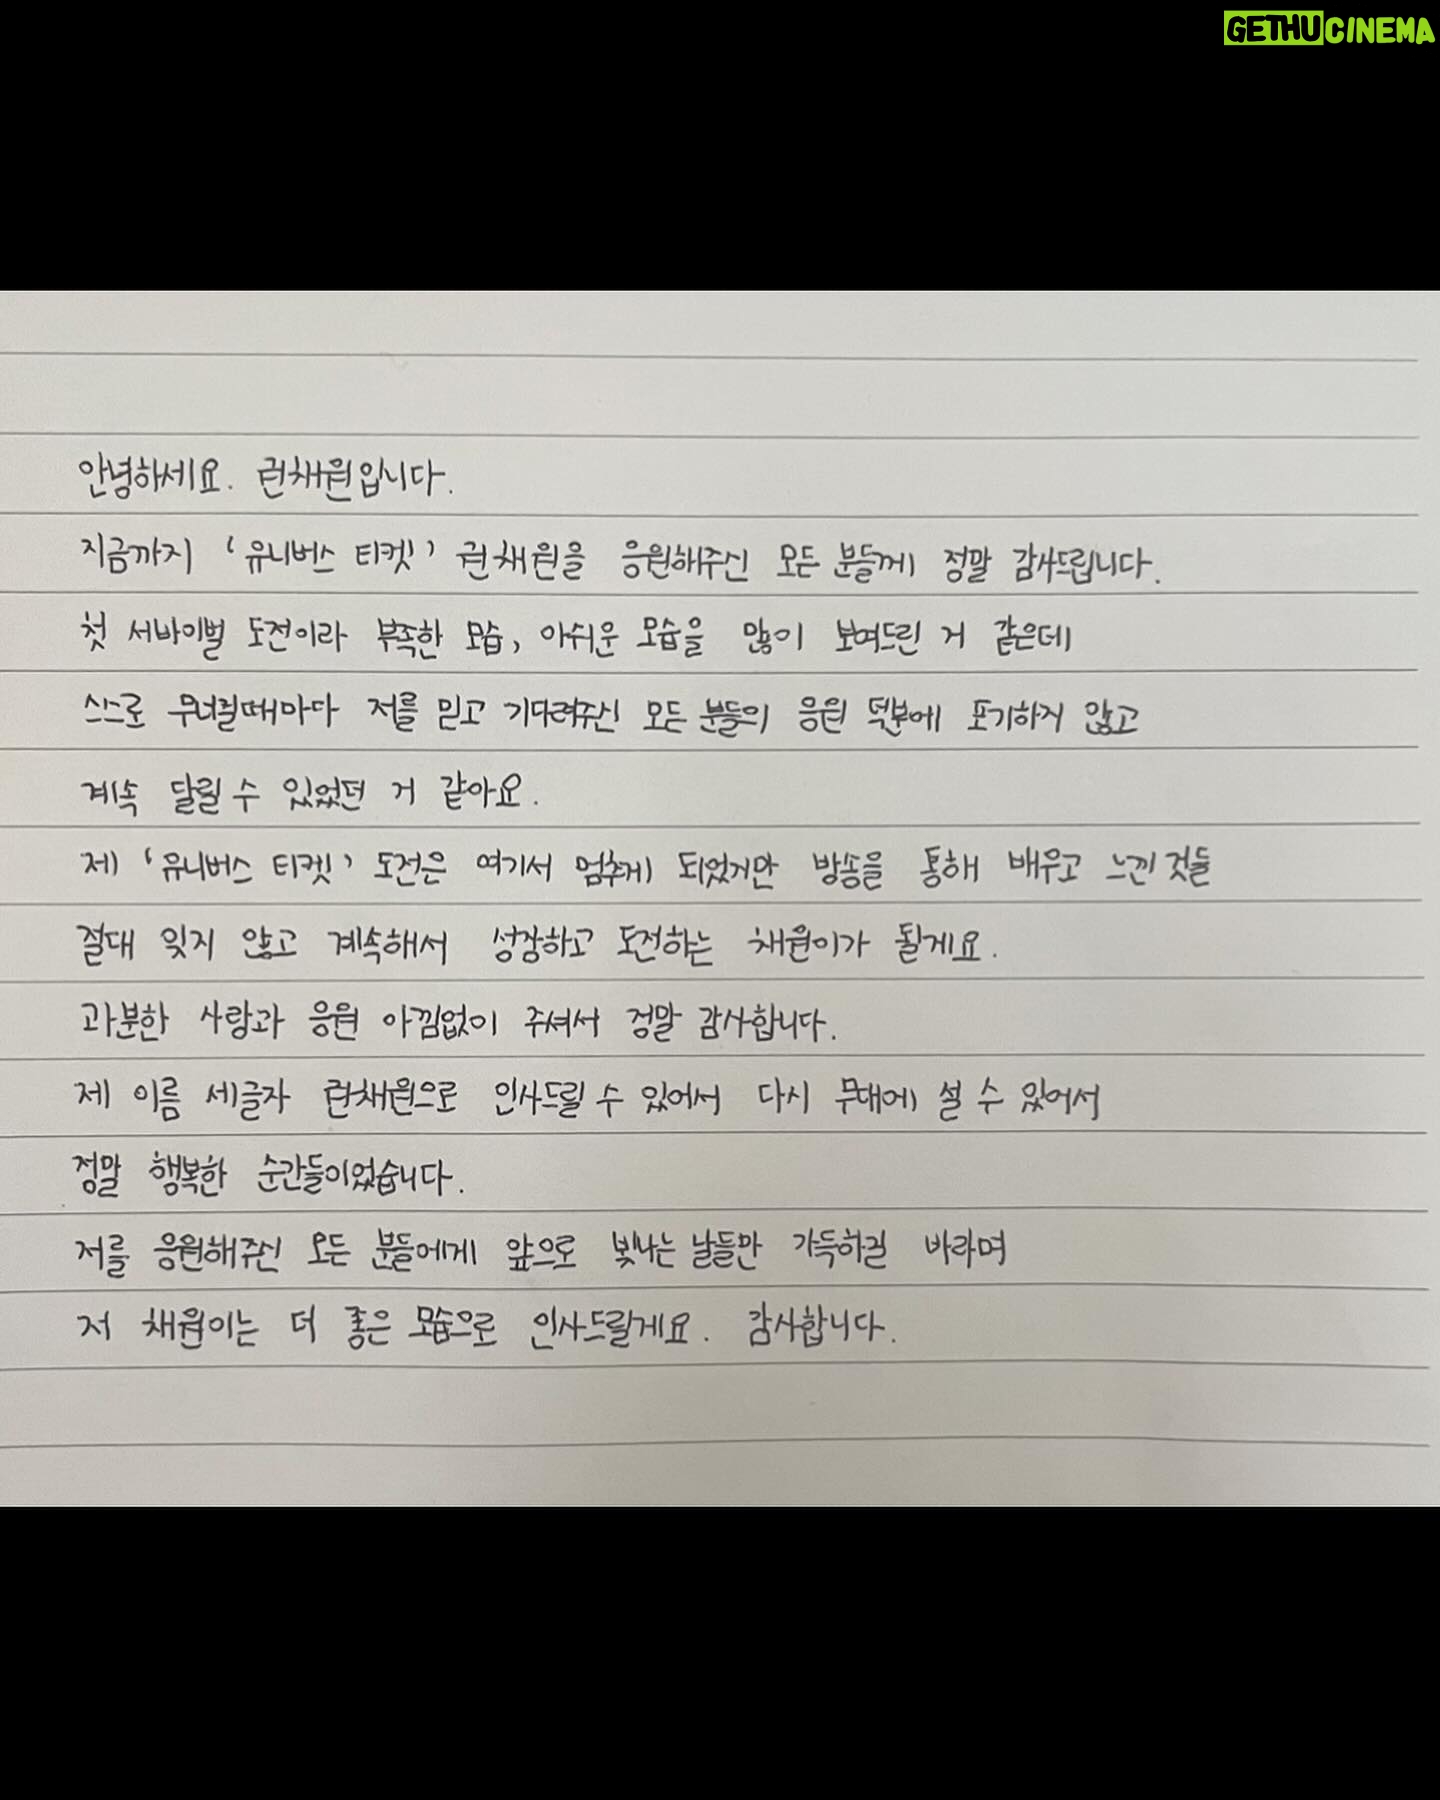 GETHUCINEMA
안녕하세요. 권채원입니다.
지금까지 '유니버스 티켓' 권채원을 응원해주신 모든 분들께 정말 감사드립니다.
첫 서바이벌 도전이라 부족한 모습, 아쉬운 모습을 많이 보여드린 거 같은데
스스로 무너질때마다 저를 믿고 기다려주신 모든 분들의 응원 덕분에 포기하지 않고
계속 달릴 수 있었던 거 같아요.
제 '유니버스 티켓' 도전은 여기서 멈추게 되었지만 방송을 통해 배우고 느낀 것들
절대 잊지 않고 계속해서 성장하고 도전하는 채원이가 될게요.
과분한 사랑과 응원 아낌없이 주셔서 정말 감사합니다.
제 이름 세글자 권채원으로 인사드릴 수 있어서 다시 무대에 설 수 있어서
정말 행복한 순간들이었습니다.
저를 응원해주신 모든 분들에게 앞으로 빛나는 날들만 가득하길 바라며
저 채원이는 더 좋은 모습으로 인사드릴게요. 감사합니다.